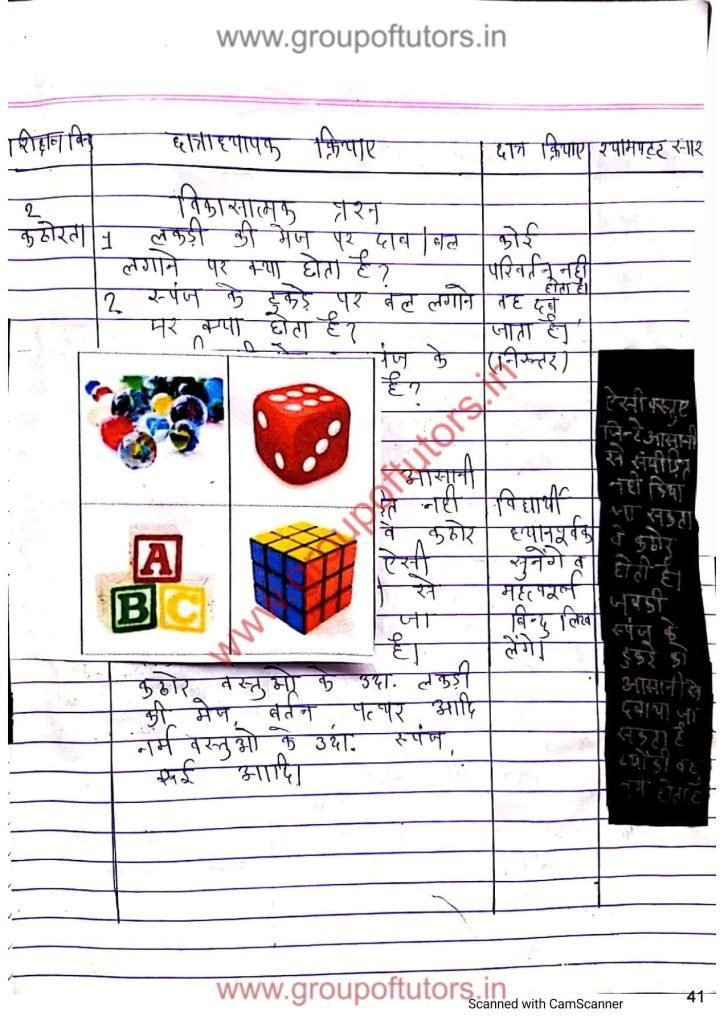 www.groupoftutors.in
शिक्षण बिन्दु छात्राध्यापक क्रियाए छात्र क्रियाए श्यामपट्ट सार
विकासात्मक प्रश्न
2
कठोरता
1 लकड़ी की मेज पर दाब/बल
लगाने पर क्या होता है?
2 स्पंज के टुकड़े पर बल लगाने
पर क्या होता है?
स्पंज के
है?
आसानी
नही
व कठोर
ऐसी
से
जा
है।
कठोर वस्तुओ के उदा. लकड़ी
की मेज, बर्तन, पत्थर आदि
नर्म वस्तुओ के उदा. स्पंज,
रूई आदि।
कोई
परिवर्तन नही
होता है।
वह दब
जाता है।
(निरुत्तर)
विद्यार्थी
ध्यानपूर्वक
सुनेंगे व
महत्वपूर्ण
बिन्दु लिख
लेंगे।
ऐसी वस्तुए
जिन्हे आसानी
से संपीडित
नही किया
जा सकता
व कठोर
होती है।
जबकी
स्पंज के
टुकड़े को
आसानी से
दबाया जा
सकता है
क्योकी वह
नर्म होता है
A
B C
www.groupoftutors.in
www.groupoftutors.in
Scanned with CamScanner
41